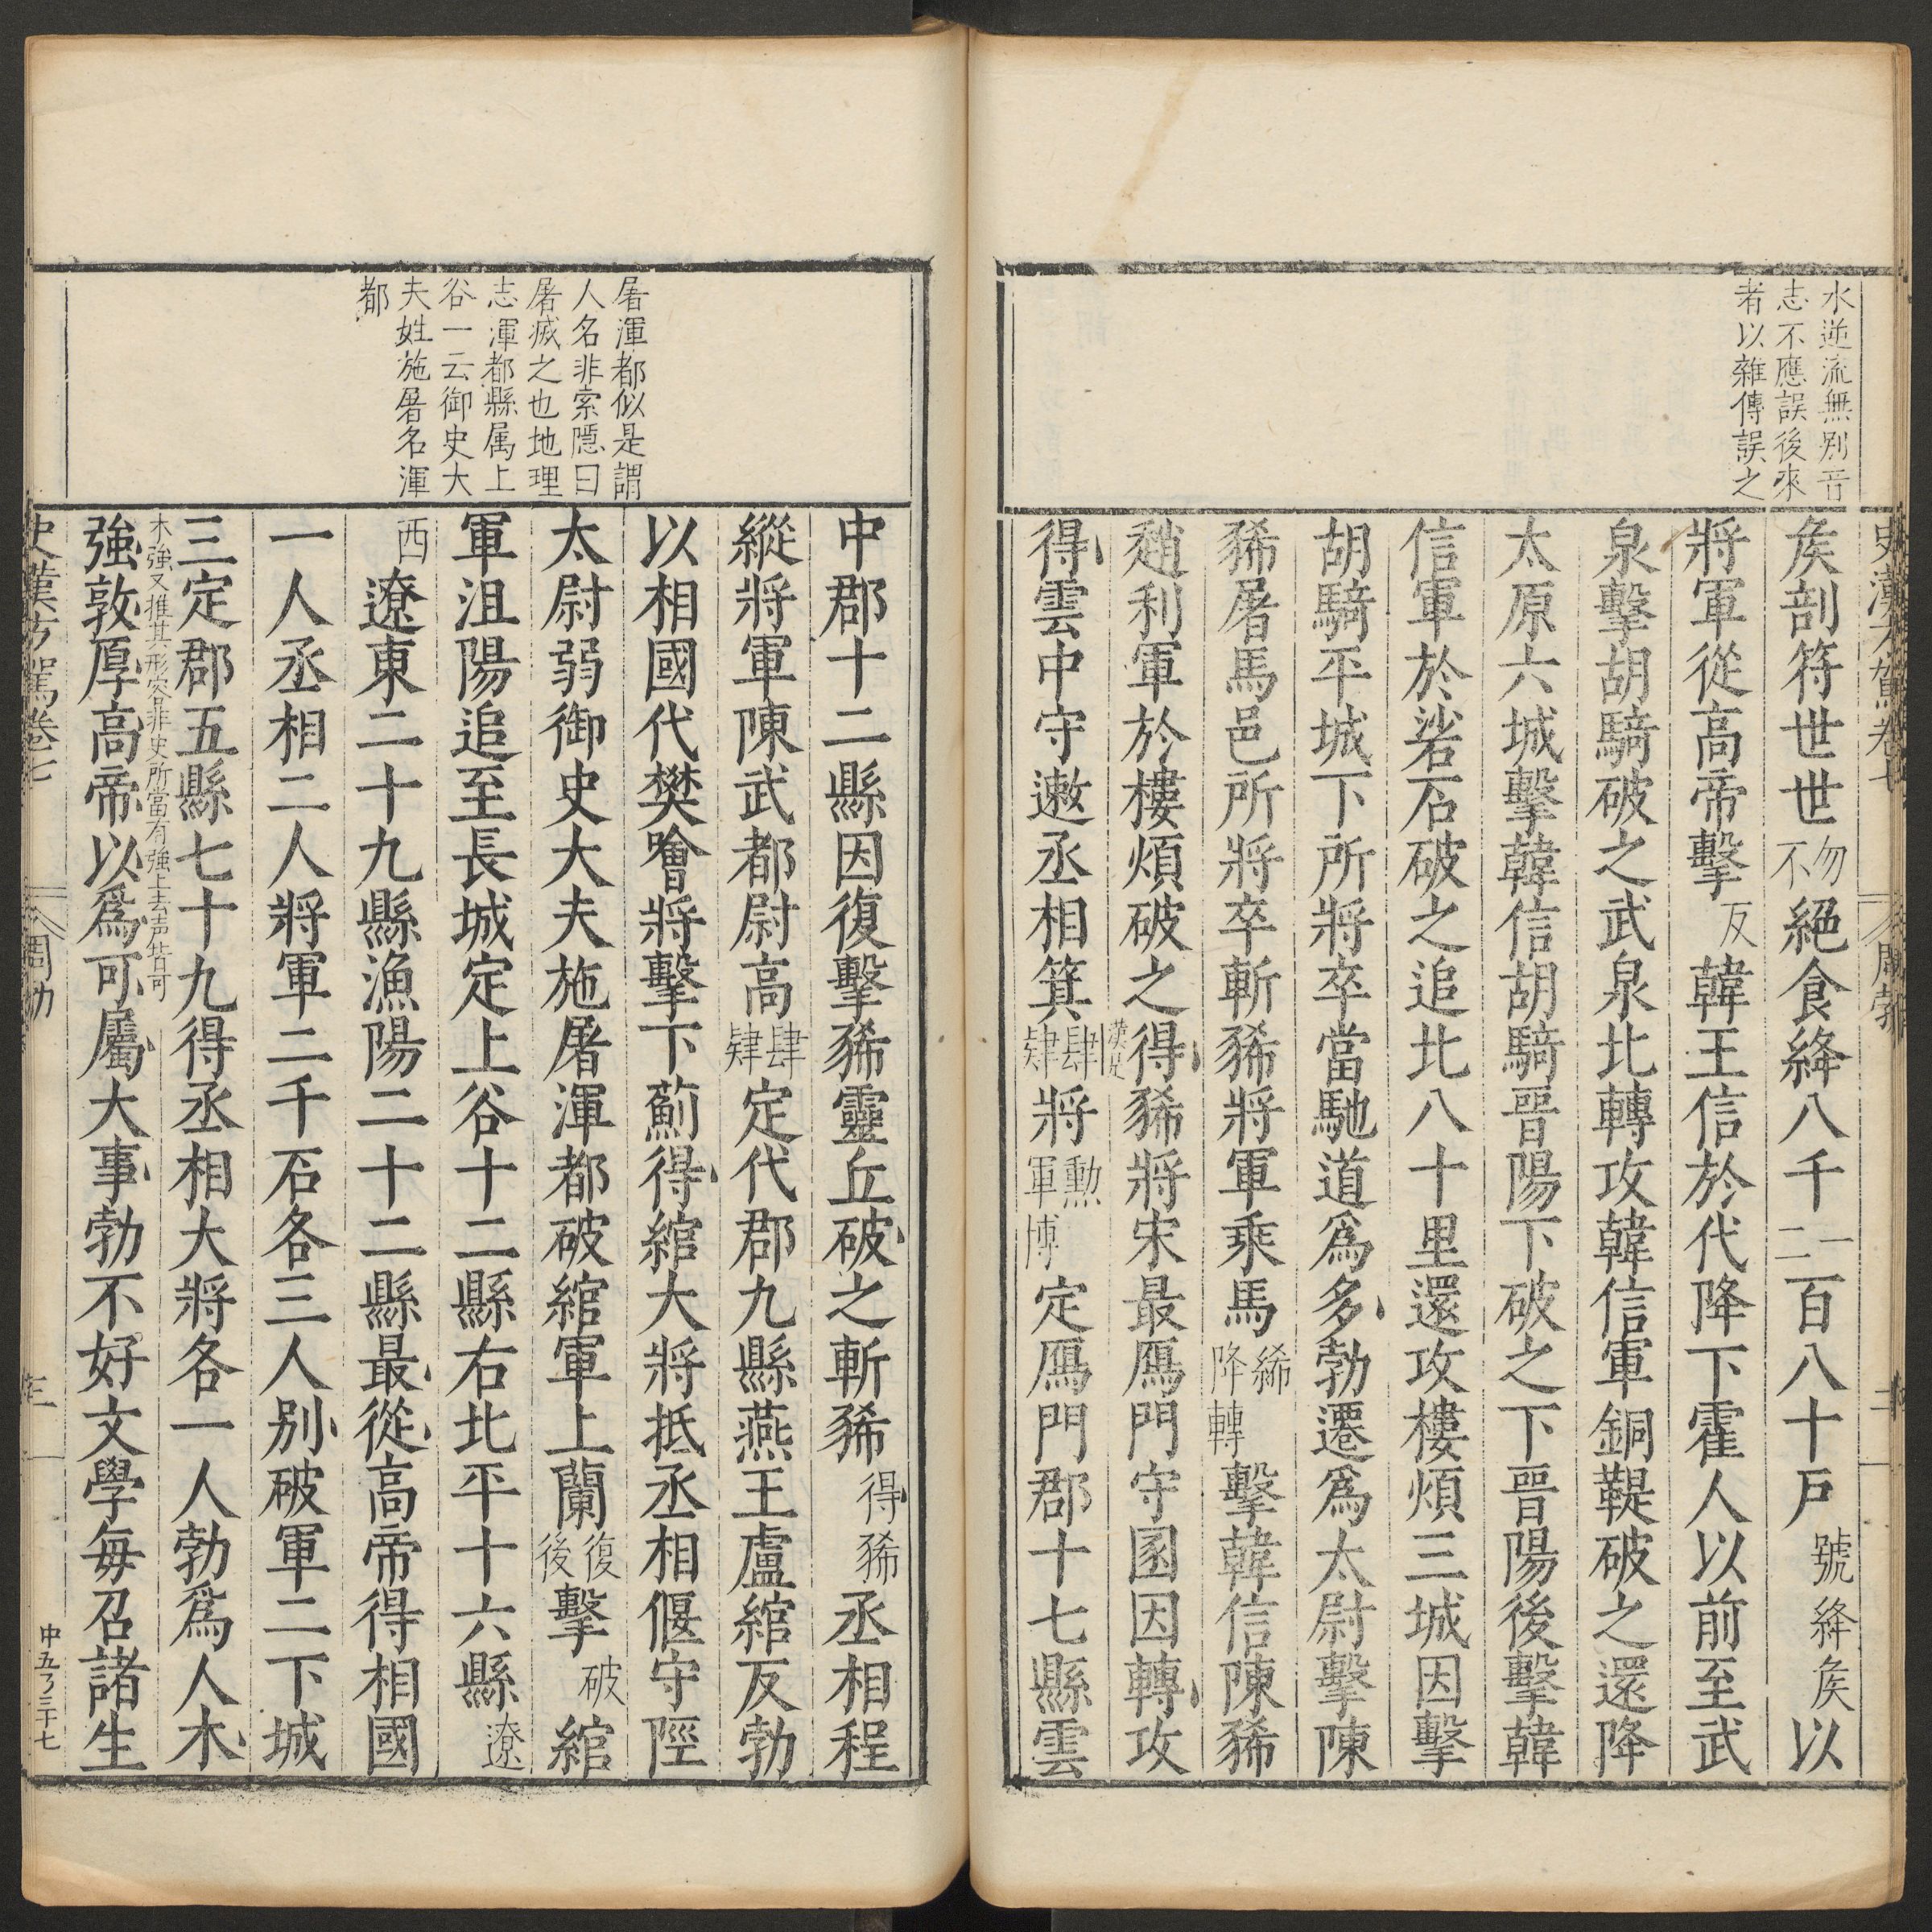 水逆流無別音
志不應誤後來
者以雜傳誤之
史漢方駕卷七
周勃
矦剖符世世勿不絕食絳八千一二百八十戶號絳矦以
將軍從高帝擊反韓王信於代降下霍人以前至武
泉擊胡騎破之武泉北轉攻韓信軍銅鞮破之還降
太原六城擊韓信胡騎晉陽下破之下晉陽後擊韓
信軍於硰石破之追北八十里還攻樓煩三城因擊
胡騎平城下所將卒當馳道爲多勃遷爲太尉擊陳
豨屠馬邑所將卒斬豨將軍乘馬絺降轉擊韓信陳豨
趙利軍於樓煩破之得豨將宋最鴈門守圂因轉攻
得雲中守遬丞相箕肆肄將勲軍博定鴈門郡十七縣雲
屠渾都似是謂
人名非索隱曰
屠烕之也地理
志渾都縣属上
谷一云御史大
夫姓施屠名渾
都
中郡十二縣因復擊豨靈丘破之斬豨得豨丞相程
縱將軍陳武都尉高肆肄定代郡九縣燕王盧綰反勃
以相國代樊噲將擊下薊得綰大將抵丞相偃守陘
太尉弱御史大夫施屠渾都破綰軍上蘭復後擊破綰
軍沮陽追至長城定上谷十二縣右北平十六縣遼
西遼東二十九縣漁陽二十二縣最從高帝得相國
一人丞相二人將軍二千石各三人別破軍二下城
三定郡五縣七十九得丞相大將各一人勃爲人木
木強又推其形容非史所當有強上去声皆可
強敦厚高帝以爲可屬大事勃不好文學每召諸生
史漢方駕卷七
周勃
三